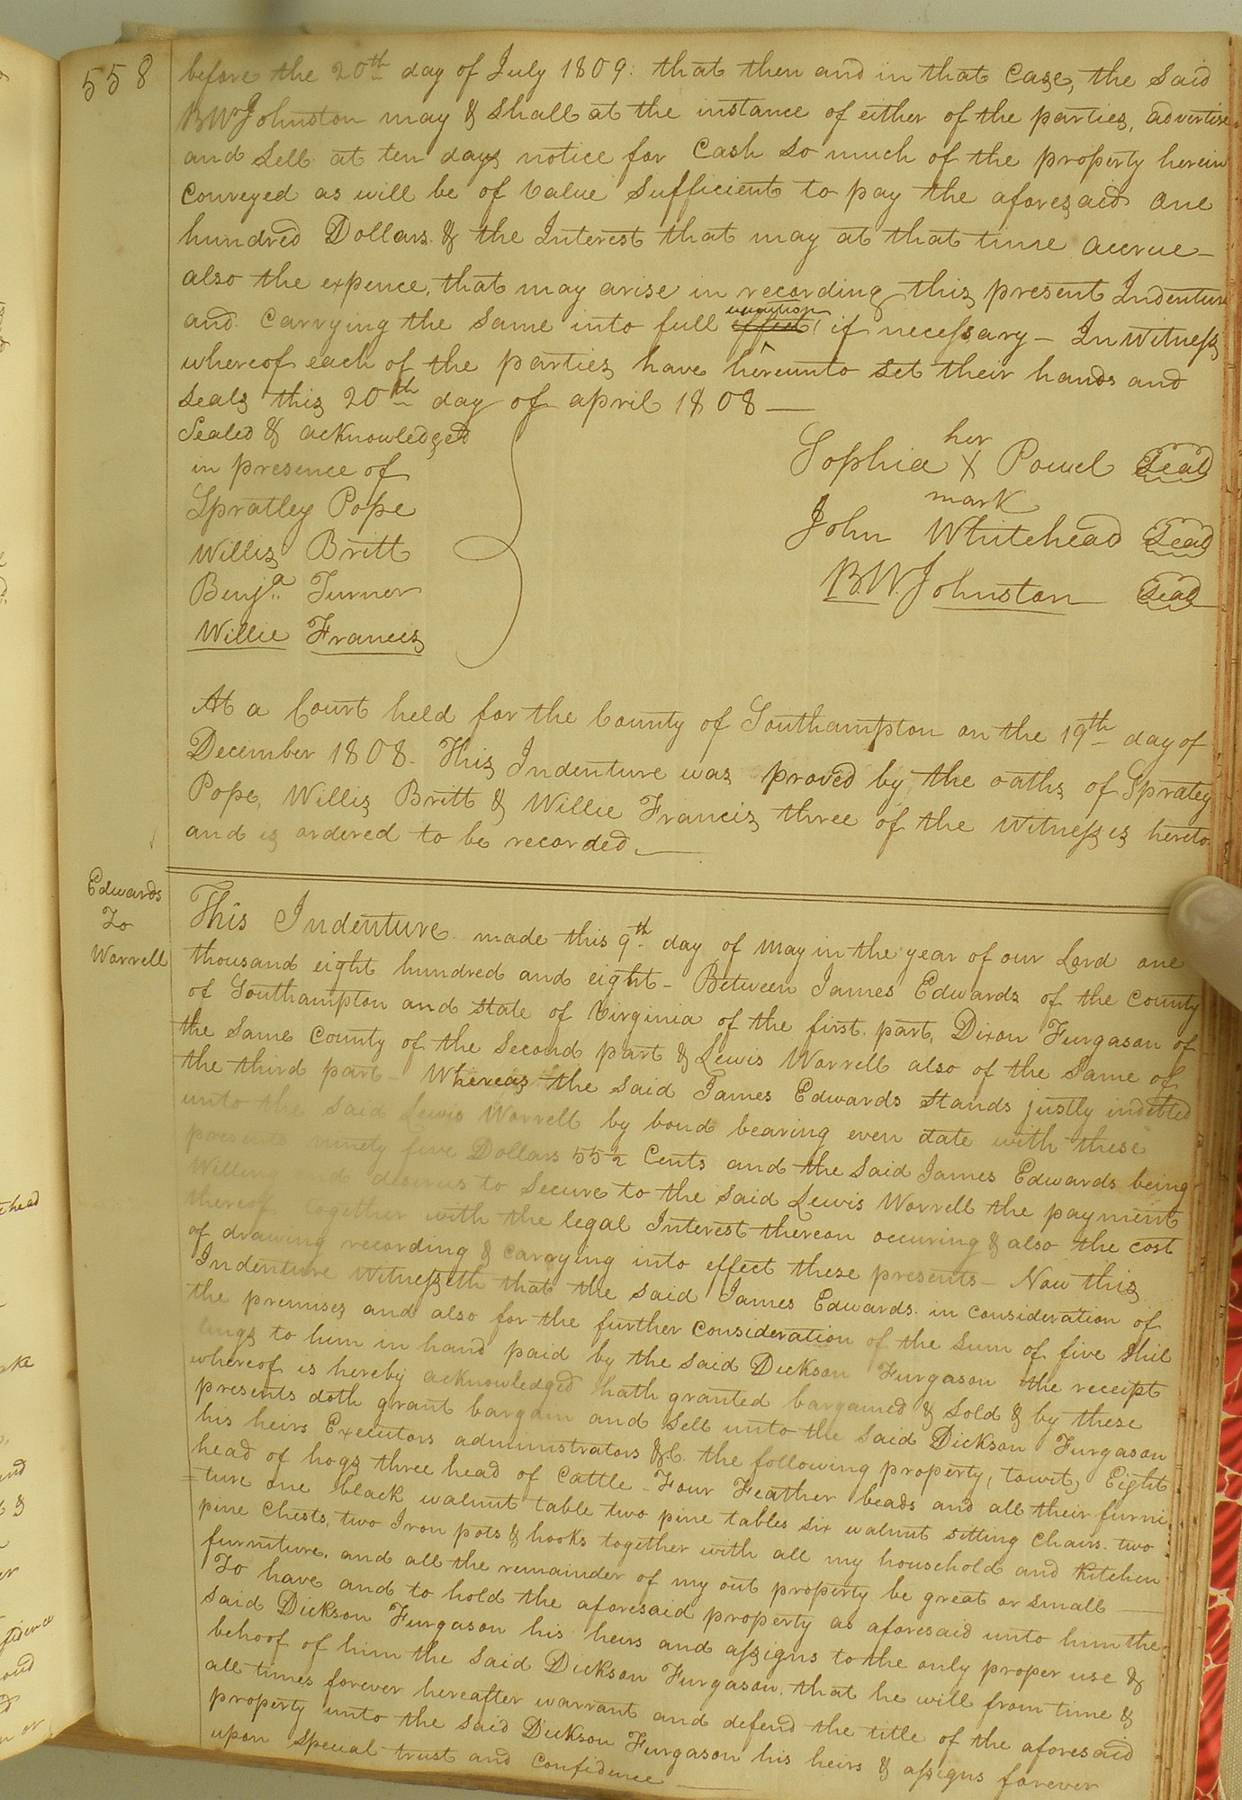 558
before the 20th day of July 1809: that then and in that Case, the said
BWJohnston may & shall at the instance of either of the parties, advertise
and Sell at ten days notice for Cash so much of the property herein
Conveyed as will be of Value Sufficient to pay the aforesaid one
hundred Dollars & the Interest that may at that time accrue—
also the expence, that may arise in recording this present Indenture
and Carrying the same into full execution if necessary — In witness
whereof each of the parties have hereunto set their hands and
seals this 20th day of april 1808 —
Sealed & acknowledged
in presence of
Spratley Pope
Willis Britt
Benja. Turner
Willie Francis
her
Sophia X Powel Seal
mark
John Whitehead Seal
B.W. Johnston Seal
At a Court held for the County of Southampton on the 19th day of
December 1808. This Indenture was proved by the oaths of Spratley
Pope, Willis Britt & Willie Francis three of the witnesses hereto
and is ordered to be recorded —
Edwards
To
Worrell
This Indenture made this 9th day of May in the year of our Lord one
thousand eight hundred and eight – Between James Edwards of the County
of Southampton and state of Virginia of the first part, Dixon Furgason of
the same County of the Second part & Lewis Worrell also of the same of
the third part – Whereas the said James Edwards stands justly indebted
unto the said Lewis Worrell by bond bearing even date with these
presents ninety five Dollars 55½ Cents and the said James Edwards being
Willing and desirus to Secure to the said Lewis Worrell the payment
thereof together with the legal Interest thereon occuring & also the cost
of drawing recording & carrying into effect these presents – Now this
Indenture Witnesseth that the said James Edwards in consideration of
the premises and also for the further consideration of the sum of five shil
lings to him in hand paid by the said Dickson Furgason the receipt
whereof is hereby acknowledged hath granted bargained & sold & by these
presents doth grant bargain and Sell unto the said Dickson Furgason
his heirs Executors administrators &C. the following property, (towit) Eight
head of hogs three head of Cattle – Four Feather beads and all their furni
=ture one black walnut table two pine tables six walnut sitting Chairs two
pine Chests, two Iron pots & hooks together with all my household and kitchen
furniture, and all the remainder of my out property be great or small —
To have and to hold the aforesaid property as aforesaid unto him the
said Dickson Furgason his heirs and assigns to the only proper use &
behoof of him the said Dickson Furgason, that he will from time &
all times forever hereafter warrant and defend the title of the aforesaid
property unto the said Dickson Furgason his heirs & assigns forever
upon special trust and Confidence —